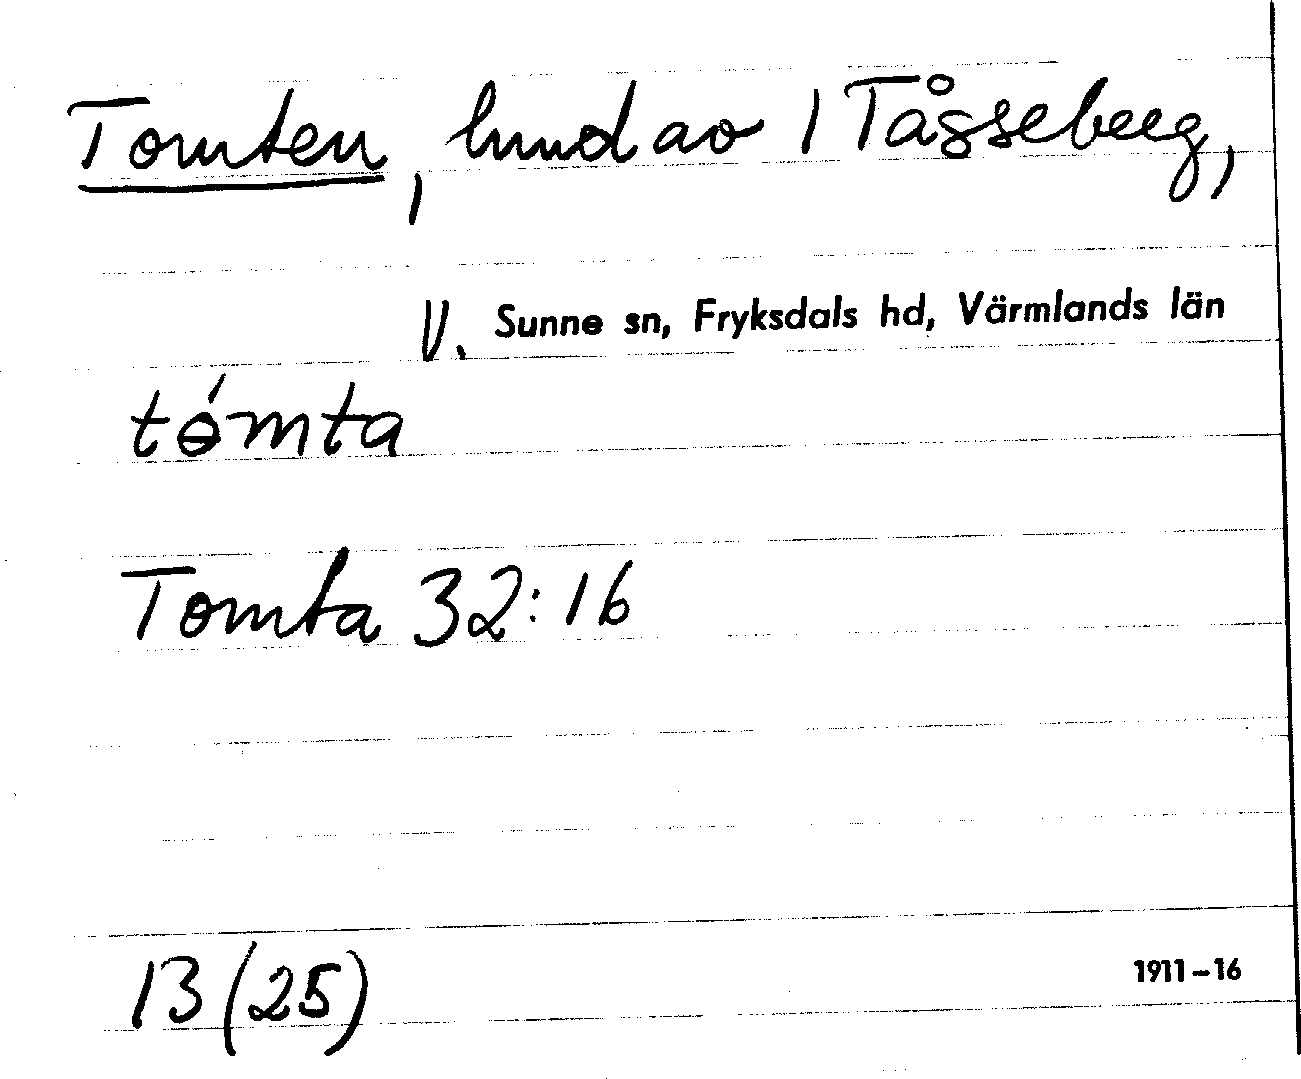 Tomten, lund av 1 Tåsseberg,
V. Sunne sn, Fryksdals hd, Värmlands län
tómta
Tomta 32:16
13 (25)
1911-16